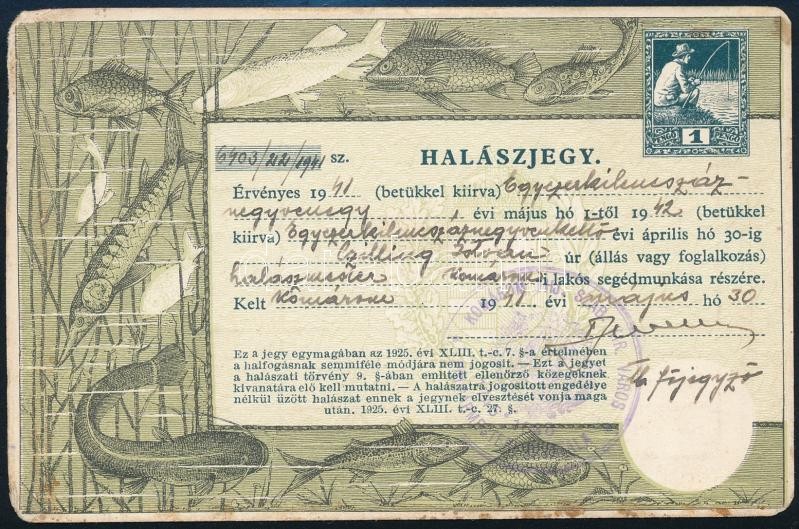 1
6403/22/1941 sz.
HALÁSZJEGY.
Érvényes 1941 (betükkel kiirva) Egyezerkilencszáz-
negyvenegy évi május hó 1-től 1942 (betükkel
kiirva) Egyezerkilencszáznegyvenkettő évi április hó 30-ig
István úr (állás vagy foglalkozás)
halászmester Komárom-i lakós segédmunkása részére.
Kelt Komárom 1941 évi május hó 30
főjegyző
Ez a jegy egymagában az 1925. évi XLIII. t.-c. 7. §-a értelmében
a halfogásnak semmiféle módjára nem jogosit. — Ezt a jegyet
a halászati törvény 9. §-ában emlitett ellenőrző közegeknek
kivanatára elő kell mutatni. — A halászatra jogositott engedélye
nélkül üzött halászat ennek a jegynek elvesztését vonja maga
után. 1925. évi XLIII. t.-c. 27. §.
VÁROS